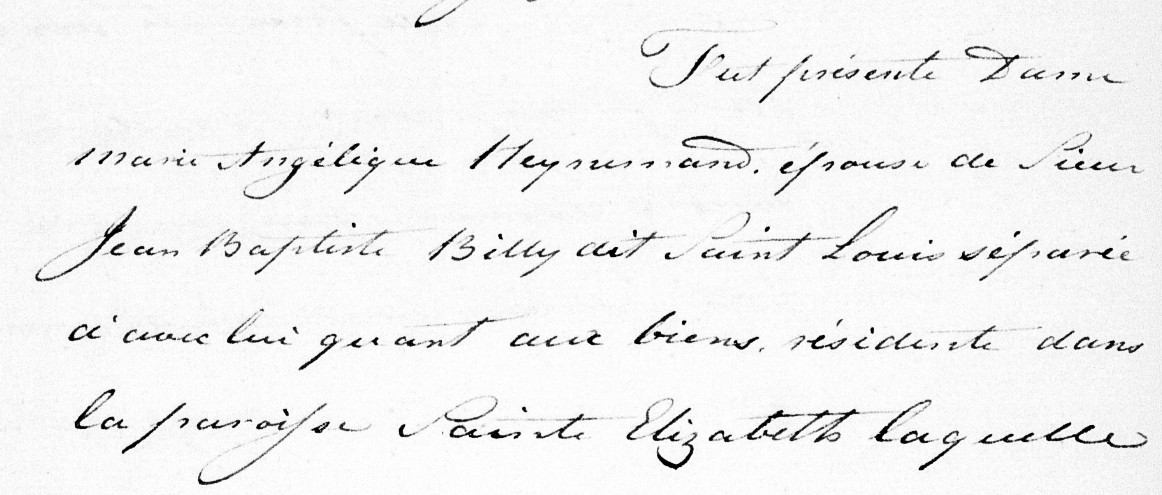 Fut présente Dame
Marie Angélique Heynemand, épouse de Sieur
Jean Baptiste Billy dit Saint Louis séparée
d'avec lui quant aux biens, résidente dans
la paroisse Sainte Elizabeth laquelle